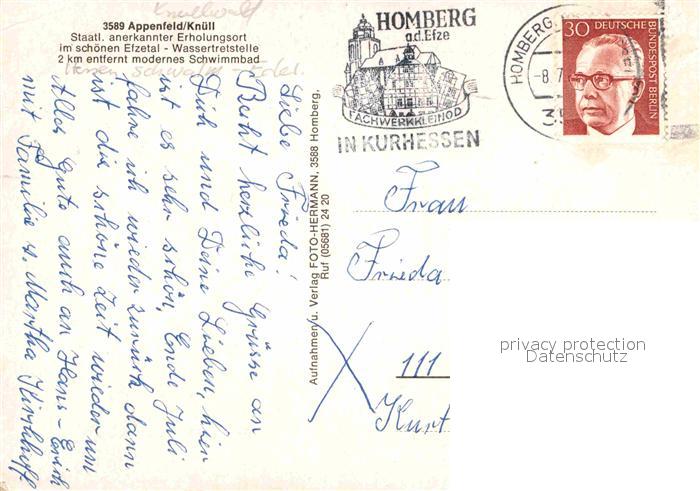 Knüllwald
3589 Appenfeld/Knüll
Staatl. anerkannter Erholungsort
im schönen Efzetal - Wassertretstelle
2 km entfernt modernes Schwimmbad
Hessen Schwalm-Eder
HOMBERG
a.d. Efze
FACHWERKKLEINOD
IN KURHESSEN
HOMBERG,
-8.7
35
30 DEUTSCHE BUNDESPOST BERLIN
Liebe Frieda!
Recht herzliche Grüsse an
Dich und Deine Lieben, hier
ist es sehr schön, Ende Juli
fahre ich wieder zurück dann
ist die schöne Zeit wieder um
Alles Gute auch an Hans-Erich
mit Familie v. Martha Kirchhoff
Aufnahmen u. Verlag FOTO-HERMANN, 3588 Homberg,
Ruf (05681) 24 20
Frau
Frieda
111
Kurt
privacy protection
Datenschutz